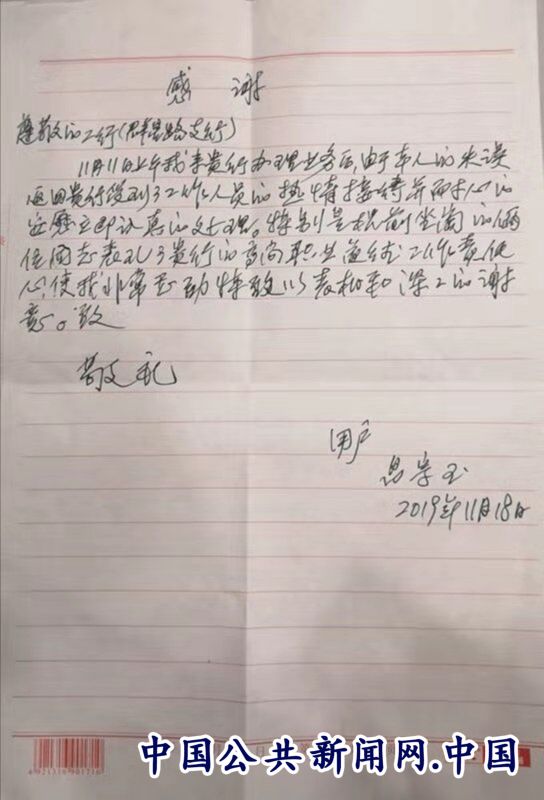 感 谢
尊敬的工行(群星路支行)
11月11日上午我来贵行办理业务后,由于本人的失误
返回贵行受到了工作人员的热情接待并耐心的
安慰立即认真的处理。特别是柜前坐岗的俩
位同志表现了贵行的高尚职业道德工作责任
心,使我非常感动特致以表衷心深深的谢
意。致
敬礼
用户
2019年11月18日
6921316901716
中国公共新闻网.中国